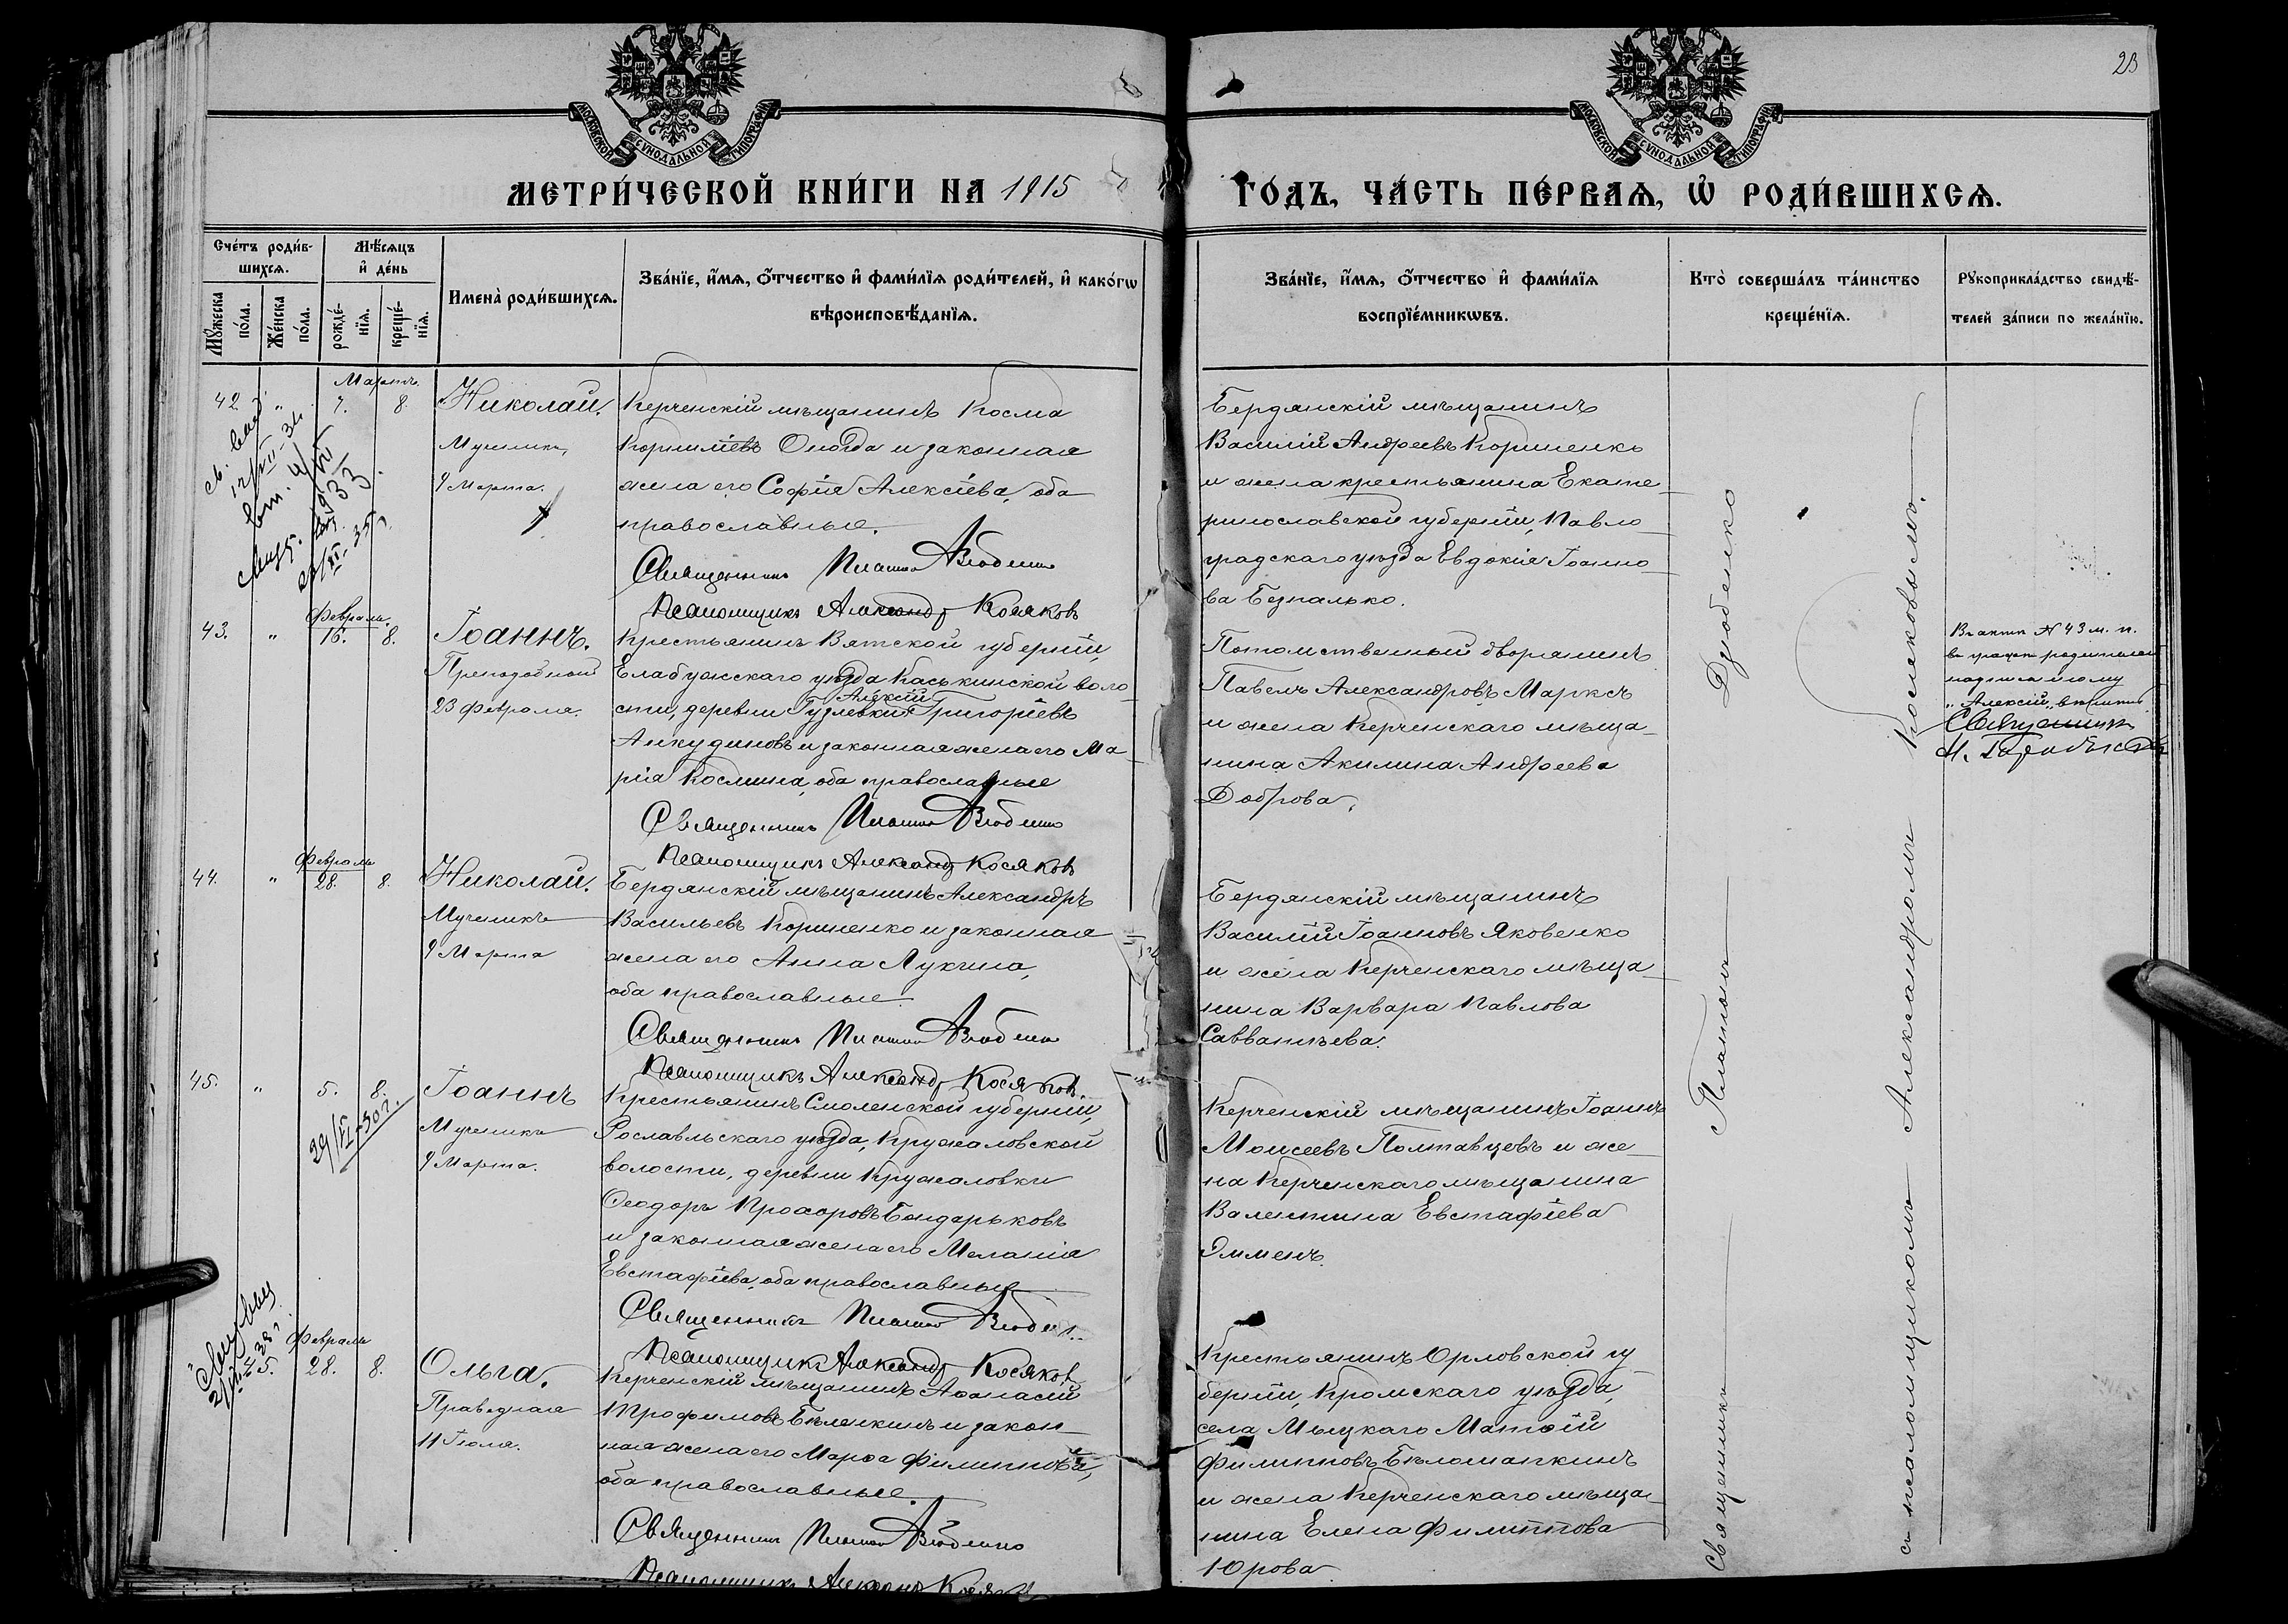 23
МОСКОВСКОЙ СѴНОДАЛЬНОЙ ТИПОГРАФІИ
МОСКОВСКОЙ СѴНОДАЛЬНОЙ ТИПОГРАФІИ
МЕТРИ́ЧЕСКОЙ КНИ́ГИ НА 1915
ГО́ДЪ, ЧА́СТЬ ПЕ́РВАѦ, Ѡ҆ РОДИ́ВШИХСѦ.
Сче́тъ роди́в-
шихсѧ.
Мꙋ́жеска
по́ла.
Же́нска
по́ла.
Мѣ́сѧцъ
и҆ де́нь
рожде́-
нїѧ.
креще́-
нїѧ.
Имена̀ роди́вшихсѧ.
Зва́нїе, и҆́мѧ, ѻ҆́тчество и҆ фами́лїѧ роди́телей, и҆ како́гѡ
вѣроисповѣ́данїѧ.
Зва́нїе, и҆́мѧ, ѻ҆́тчество и҆ фами́лїѧ
воспрїе́мникѡвъ.
Кто̀ соверша́лъ та́инство
креще́нїѧ.
Рꙋкоприкла́дство свидѣ́-
телей за́писи по жела́нїю.
Мартъ.
42. " 7. 8.
Николай.
Мученика,
9 Марта.
Керченскій мѣщанинъ Косма
Корниліевъ Оногда и законная
жена его Софія Алексіева, оба
православные.
Священникъ Платонъ Дзюбенко
Псаломщикъ Александръ Косяковъ
Бердянскій мѣщанинъ
Василій Андреевъ Корниенко
и жена крестьянина Екате-
ринославской губерніи, Павло-
градскаго уѣзда Евдокія Іоанно-
ва Безпалько.
Февраль.
43. " 16. 8.
Іоаннъ.
Преподобный
23 Февраля.
Крестьянинъ Вятской губерніи,
Елабужскаго уѣзда Каськинской воло-
Алексій
сти, деревни Гузлевки Григоріевъ
Анкудиновъ и законная жена его Ма-
рія Космина, оба православные
Священникъ Платонъ Дзюбенко
Псаломщикъ Александръ Косяковъ
Потомственный дворянинъ
Павелъ Александровъ Марксъ
и жена Керченскаго мѣща-
нина Акилина Андреева
Доброва.
Въ актѣ № 43 м. п.
въ графѣ родителей
надписанному
"Алексій" вѣрить
Священникъ
Февраль
44. " 28. 8.
Николай.
Мученикъ
9 Марта
Бердянскій мѣщанинъ Александръ
Васильевъ Корниенко и законная
жена его Анна Лукина,
оба православные.
Священникъ Платонъ Дзюбенко
Псаломщикъ Александръ Косяковъ.
Бердянскій мѣщанинъ
Василій Іоанновъ Яковенко
и жена Керченскаго мѣща-
нина Варвара Павлова
Савватѣева.
45. " 5. 8.
29/VI-30 г.
Іоаннъ
Мученика
9 Марта.
Крестьянинъ Смоленской губерніи,
Рославльскаго уѣзда, Кружаловской
волости, деревни Кружаловки
Ѳеодоръ Прохоровъ Бондарьковъ
и законная жена его Меланія
Евстафіева, оба православные
Священникъ Платонъ Дзюбенко
Псаломщикъ Александръ Косяковъ
Керченскій мѣщанинъ Іоаннъ
Моисеевъ Полтавцевъ и же-
на Керченскаго мѣщанина
Валентина Евстафіева
Эмменъ.
Февраль
" 5. 28. 8.
Ольга.
Праведная
11 Іюля.
Керченскій мѣщанинъ Аѳанасій
Трофимовъ Бѣленкинъ и закон-
ная жена его Марѳа Филиппова,
оба православные.
Священникъ Платонъ Дзюбенко
Псаломщикъ Александръ Косяковъ
Крестьянинъ Орловской гу-
берніи, Кромскаго уѣзда,
села Мыцкаго Матѳій
Филипповъ Бѣлошапкинъ
и жена Керченскаго мѣща-
нина Елена Филиппова
Юрова
Священникъ Платонъ Дзюбенко
съ псаломщикомъ Александромъ Косяковымъ.